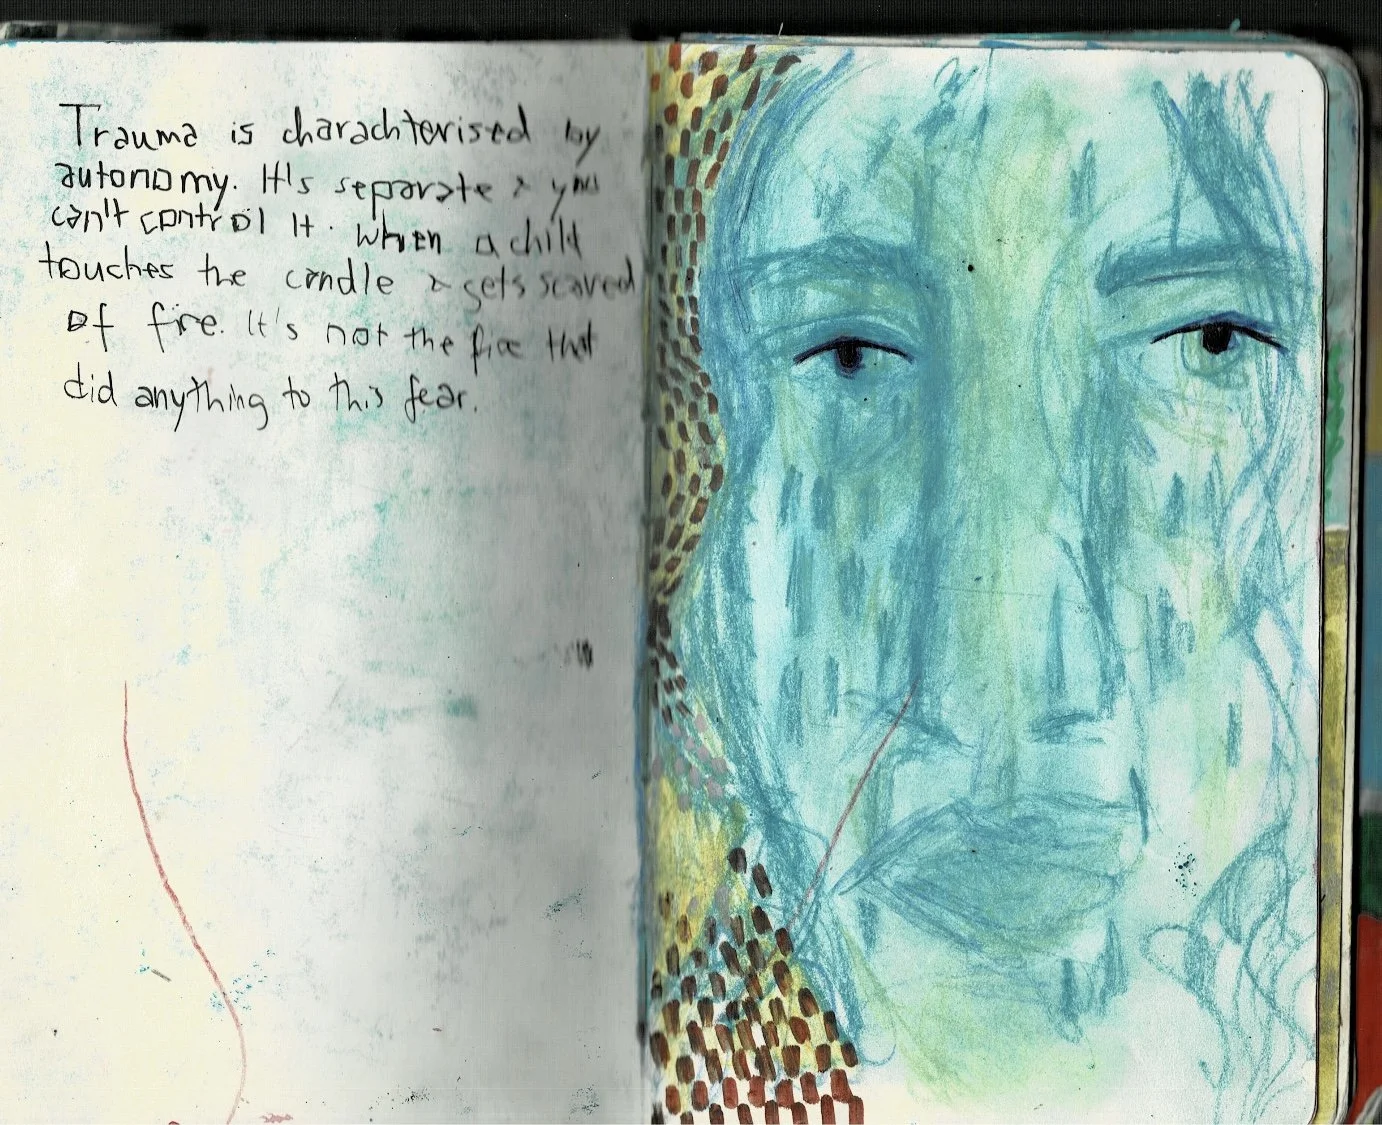 Trauma is charachterised by
autonomy. It's separate & you
can't control it. When a child
touches the candle & gets scared
of fire. It's not the fire that
did anything to this fear.